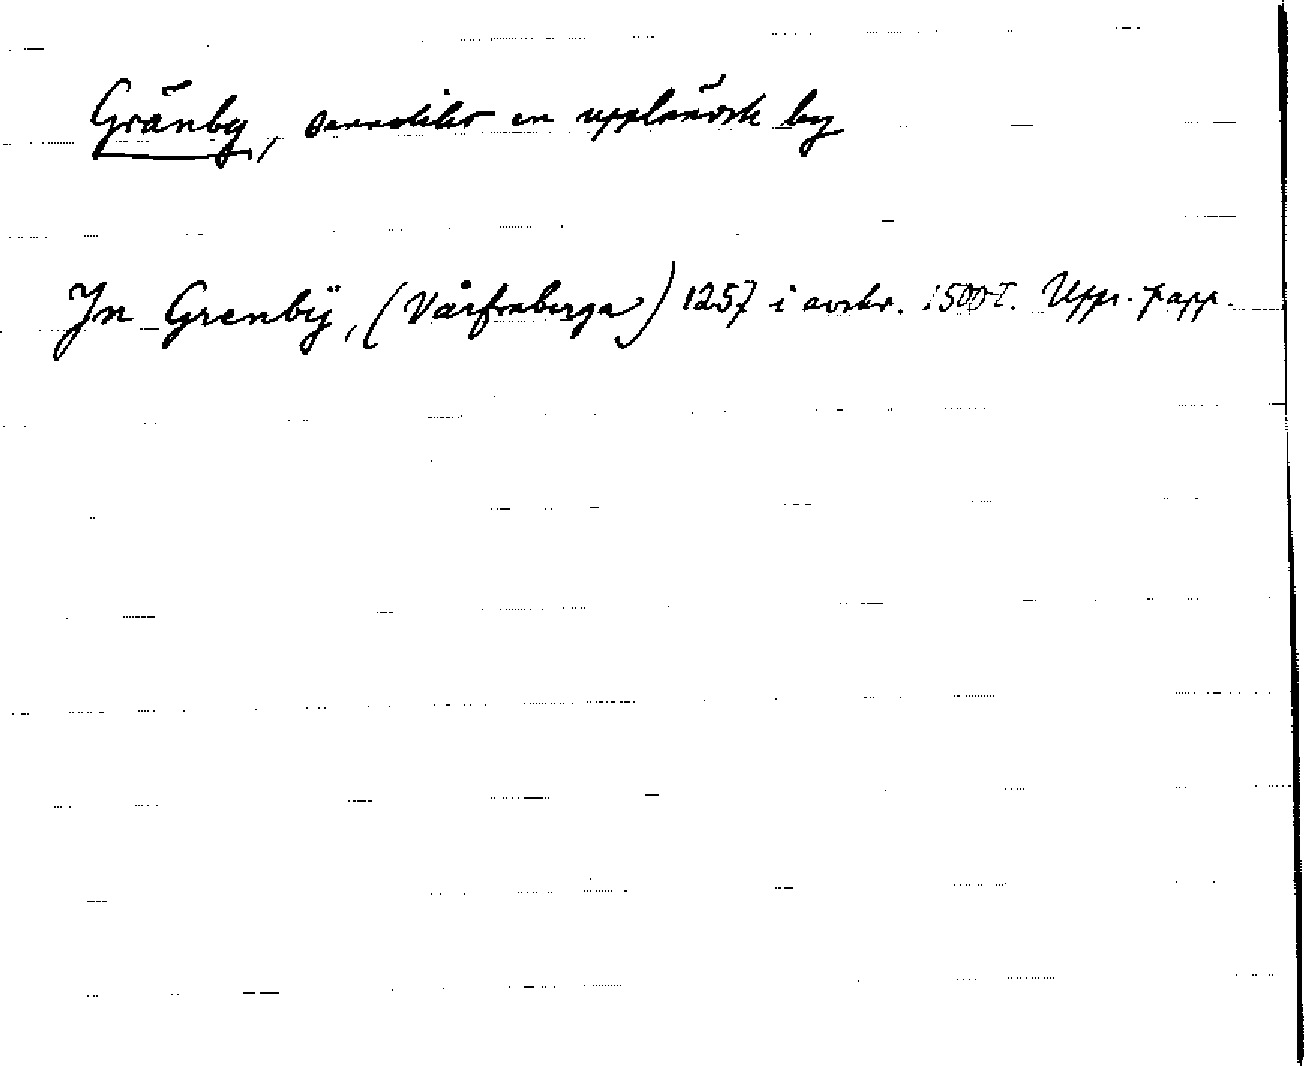 Gränby, sannolikt en uppländsk by
In Grenbÿ, (Vårfruberga) 1257 i avskr. 1500T. Uppr. papp.